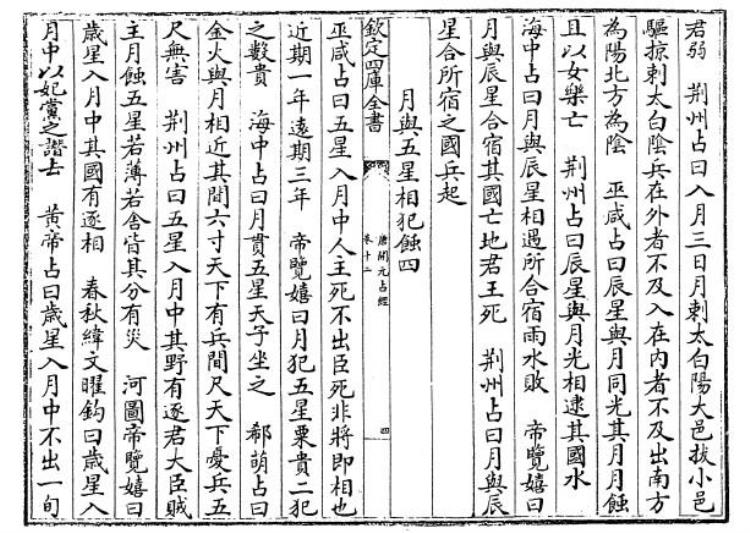 君弱　荆州占曰入月三日月刺太白陽大邑拔小邑
驅掠刺太白陰兵在外者不及入在内者不及出南方
為陽北方為陰　巫咸占曰辰星與月同光其月月蝕
且以女樂亡　荆州占曰辰星與月光相逮其國水
海中占曰月與辰星相遇所合宿雨水敗　帝覽嬉曰
月與辰星合宿其國亡地君王死　荆州占曰月與辰
星合所宿之國兵起
月與五星相犯蝕四
欽定四庫全書
唐開元占經
卷十二
四
巫咸占曰五星入月中人主死不出臣死非將即相也
近期一年遠期三年　帝覽嬉曰月犯五星粟貴二犯
之數貴　海中占曰月貫五星天子坐之　郗萌占曰
金火與月相近其間六寸天下有兵間尺天下憂兵五
尺無害　荆州占曰五星入月中其野有逐君大臣賊
主月蝕五星若薄若舍皆其分有災　河圖帝覽嬉曰
歲星入月中其國有逐相　春秋緯文曜鈎曰歲星入
月中以妃黨之譛去　黄帝占曰歲星入月中不出一旬